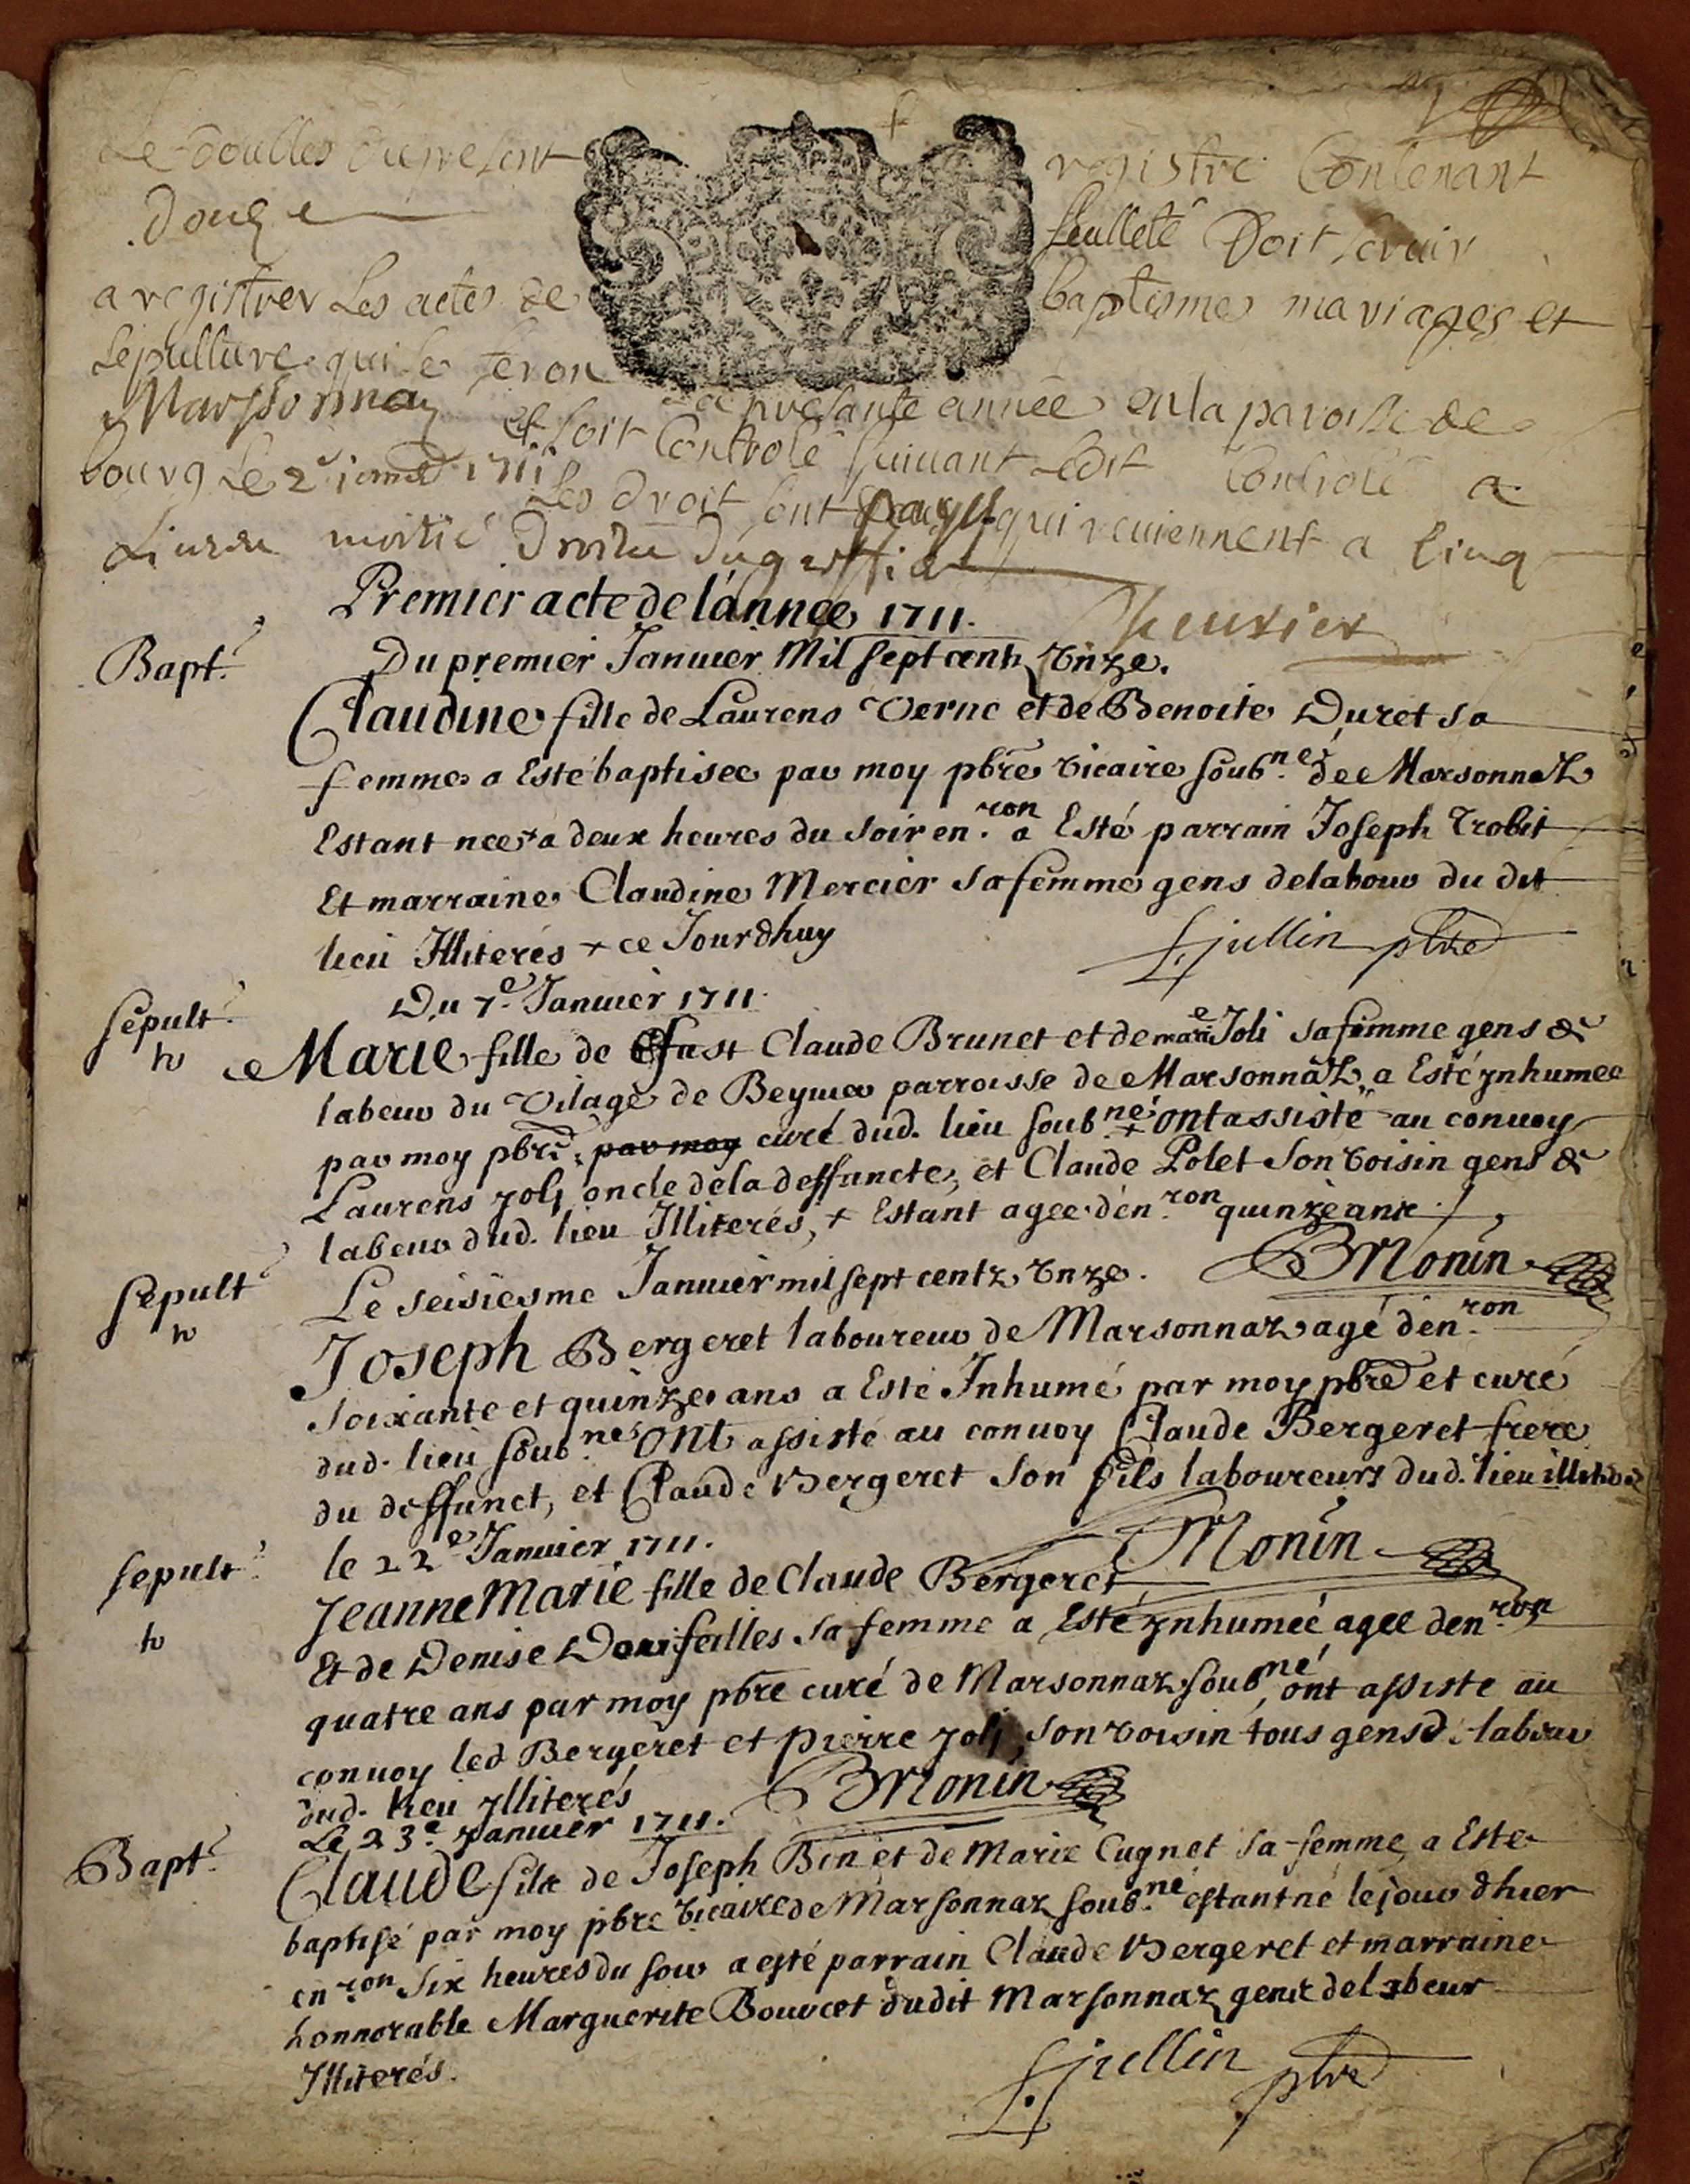 Le doubles du present registre Contenant
douze feulleté Doit servir
a registrer Les actes de baptesmes mariages et
sepulture qui se feron La presante année en la paroisse de
Marsonna et soit Controlé suivant Ledit Controlé a
bourg Le 2e 1711 Les droit sont payes qui reviennent a Cinq
Livres moitié Droitu du greffier
Premier acte de lannee 1711.
Bapt. Du premier Januier Mil sept centz Vnze.
Claudine fille de Laurens Verne et de Benoite Duret sa
femme a Esté baptisee par moy pbre vicaire soubné de Marsonnaz
Estant nee + a deux heures du soir en.ron a Esté parrain Joseph Trobit
Et marraine Claudine Mercier sa femme gens delabour du dit
lieu Illiterés + ce Jourdhuy
Jullin pbre
Sepult. Du 7e Januier 1711.
Marie fille de Claude Brunet et de marie Joli sa femme gens de
labeur du Vilage de Beyuier parroisse de Marsonnaz, a Esté ynhumee
par moy pbre, par moy curé dud. lieu soubné + ont assisté au convoy
Laurens yoly oncle dela deffuncte, et Claude Polet son voisin gens de
labeur dud. lieu Illiterés, + Estant agee den.ron quinze ans
Monin
Sepult Le seisiesme Januier mil sept centz Vnze.
Joseph Bergeret laboureur de Marsonnaz agé den.ron
soixante et quinze ans a Esté Inhumé par moy pbre et curé
dud. lieu soubné ont assisté au convoy Claude Bergeret frere
du deffunct, et Claude Bergeret son fils laboureurs dud. lieu
Monin
sepult. le 22e Januier 1711.
Jeanne Marie fille de Claude Bergeret
Et de Denise sa femme a Esté ynhumeé agee den.ron
quatre ans par moy pbre curé de Marsonnaz soubné, ont assiste au
convoy led Bergeret et pierre yoly, son voisin tous gens de labeur
dud. lieu ylliterés
Monin
Le 23e yanuier 1711.
Bapt. Claude fils de Joseph Bin et de Marie Cugnet sa femme, a Este
baptisé par moy pbre vicaire de Marsonnaz soubné estant né le jour dhier
en.ron six heures du soir a esté parrain Claude Bergeret et marraine
honnorable Marguerite Bouvet dudit Marsonnaz gens delabeur
Illiterés.
Jullin pbre